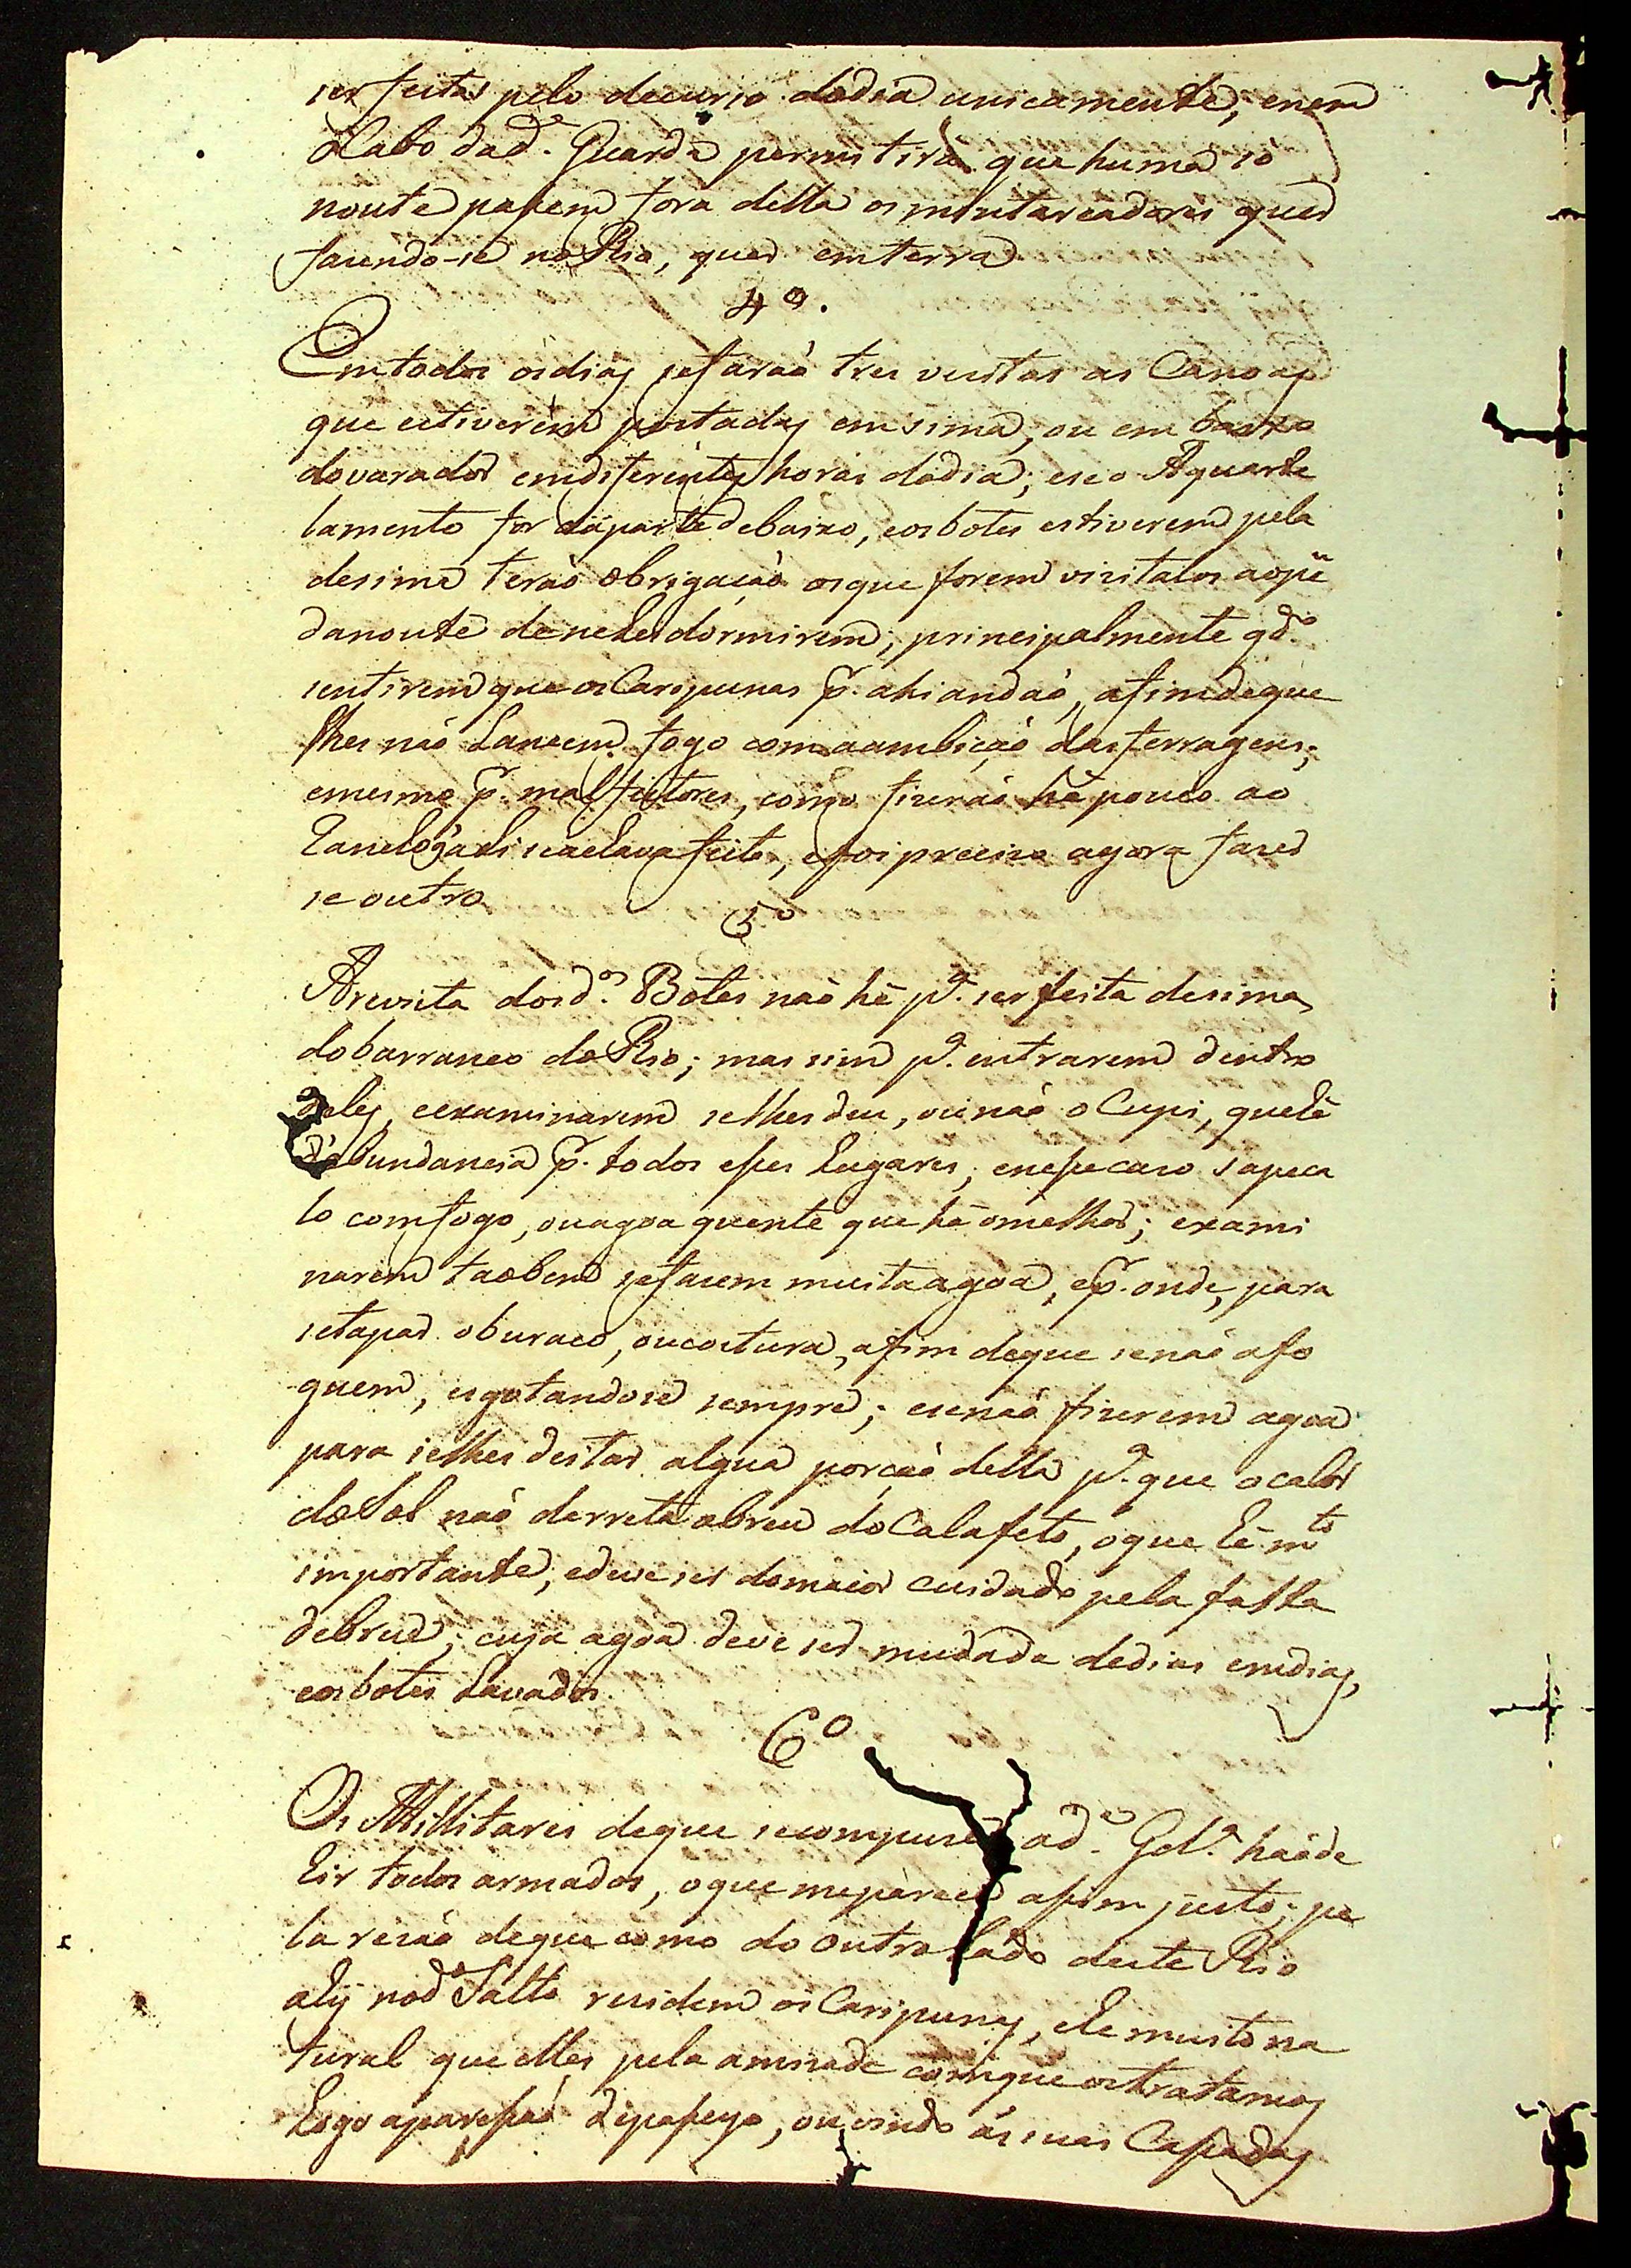 ser feitas pelo decurio dodia unicamente, enem
oCabo dad.ª Guarda permitira que huma só
noute passem fora della osmontareadores quer
fasendo-se noRio, quer emterra
4º.
Emtodos osdias sefaraõ tres visitas as Canoas
que estiverem postadas emsima, ou em baixo
dovarador emdiferentes horas dodia; eseo Aquarte
lamento for daparte debaixo, eosbotes estiverem pela
desima teraõ obrigaçaõ osque forem visitalos aopé
danoute deneles dormirem, principalmente qdº
sentirem que os Caripunas pr. ahi andaõ, afimdeque
lhes naõ Lancem fogo comaambiçaõ dasferragens;
emesmo pr. malfeitores, como fizeraõ há pouco ao
 seachava feito, efoi preciso agora fazer
se outro
5º
Arevista dosdºs Botes naõ hé pª. ser feita desima
dobarranco doRio; mas sim pª. entrarem dentro
delles, eexaminarem selhes deu, ounaõ o Cupi, que hé
d'abundancia pr. todos esses Lugares; enessecaso sapeca
lo comfogo, ouagoa quente que hé omelhor; exami
narem taobem sefasem muitaagoa, epr. onde, para
setapar oburaco, oucostura, afim deque senaõ afo
guem, esgotandose sempre; esenaõ fizerem agoa
para selhes deitar algua porçaõ della pª. que ocalor
doSol naõ derreta abreu doCalafeto, oque hé mto
importante, edeve ser domaior cuidado pela falta
debreu; cuja agoa deve ser mudada dedias emdias,
eosbotes Lavados.
6º
Os Millitares deque secompuser adª. Gdª. haõde
hir todos armados, oque meparece assim justo; pe
la resaõ deque como do outro lado deste Rio
aly nodº Salto residem os Caripunas, ehe muito na
tural que elles pela amisade comque ostratamos
Logo apareçaõ depasseyo, ou indo ás suas Cassadas